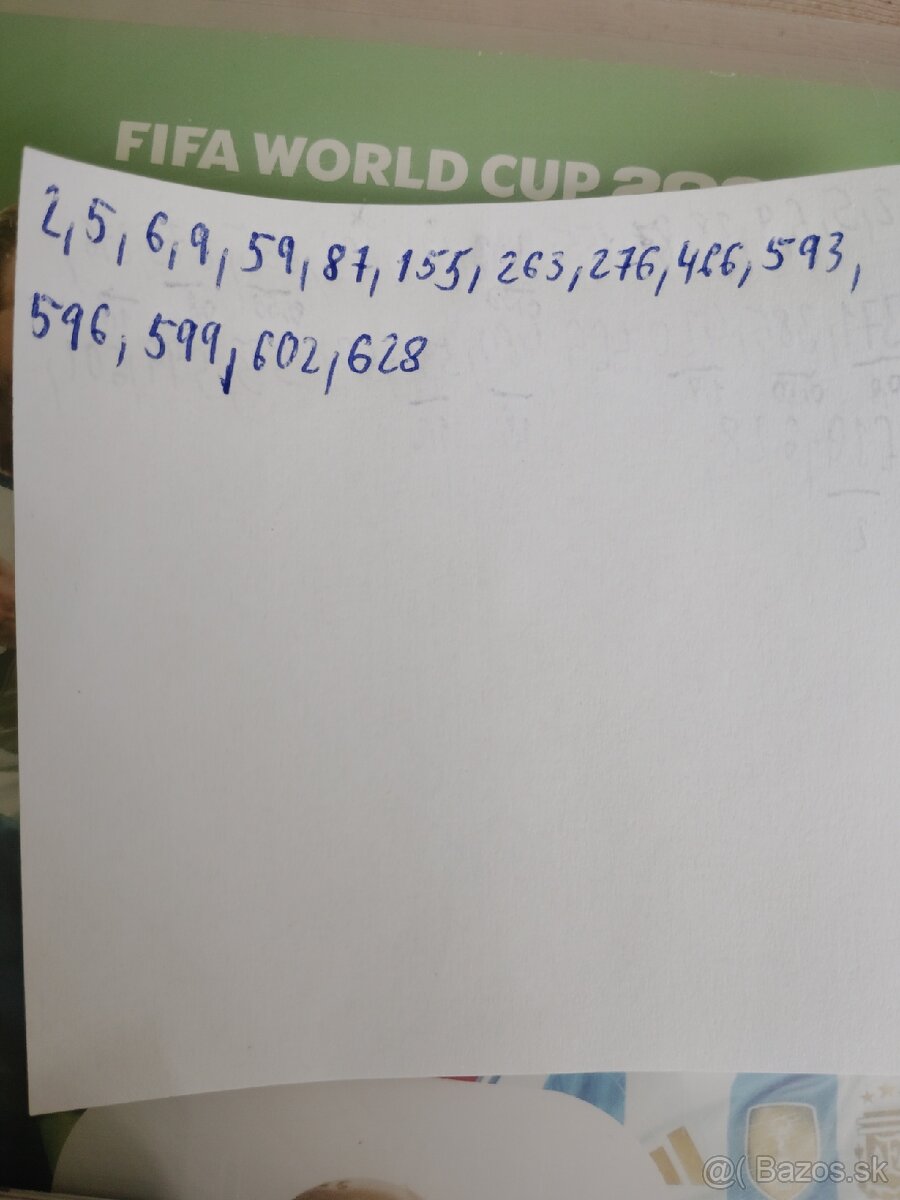 FIFA WORLD CUP
2, 5, 6, 9, 59, 87, 155, 263, 276, 466, 593,
596, 599, 602, 628
@( Bazos.sk